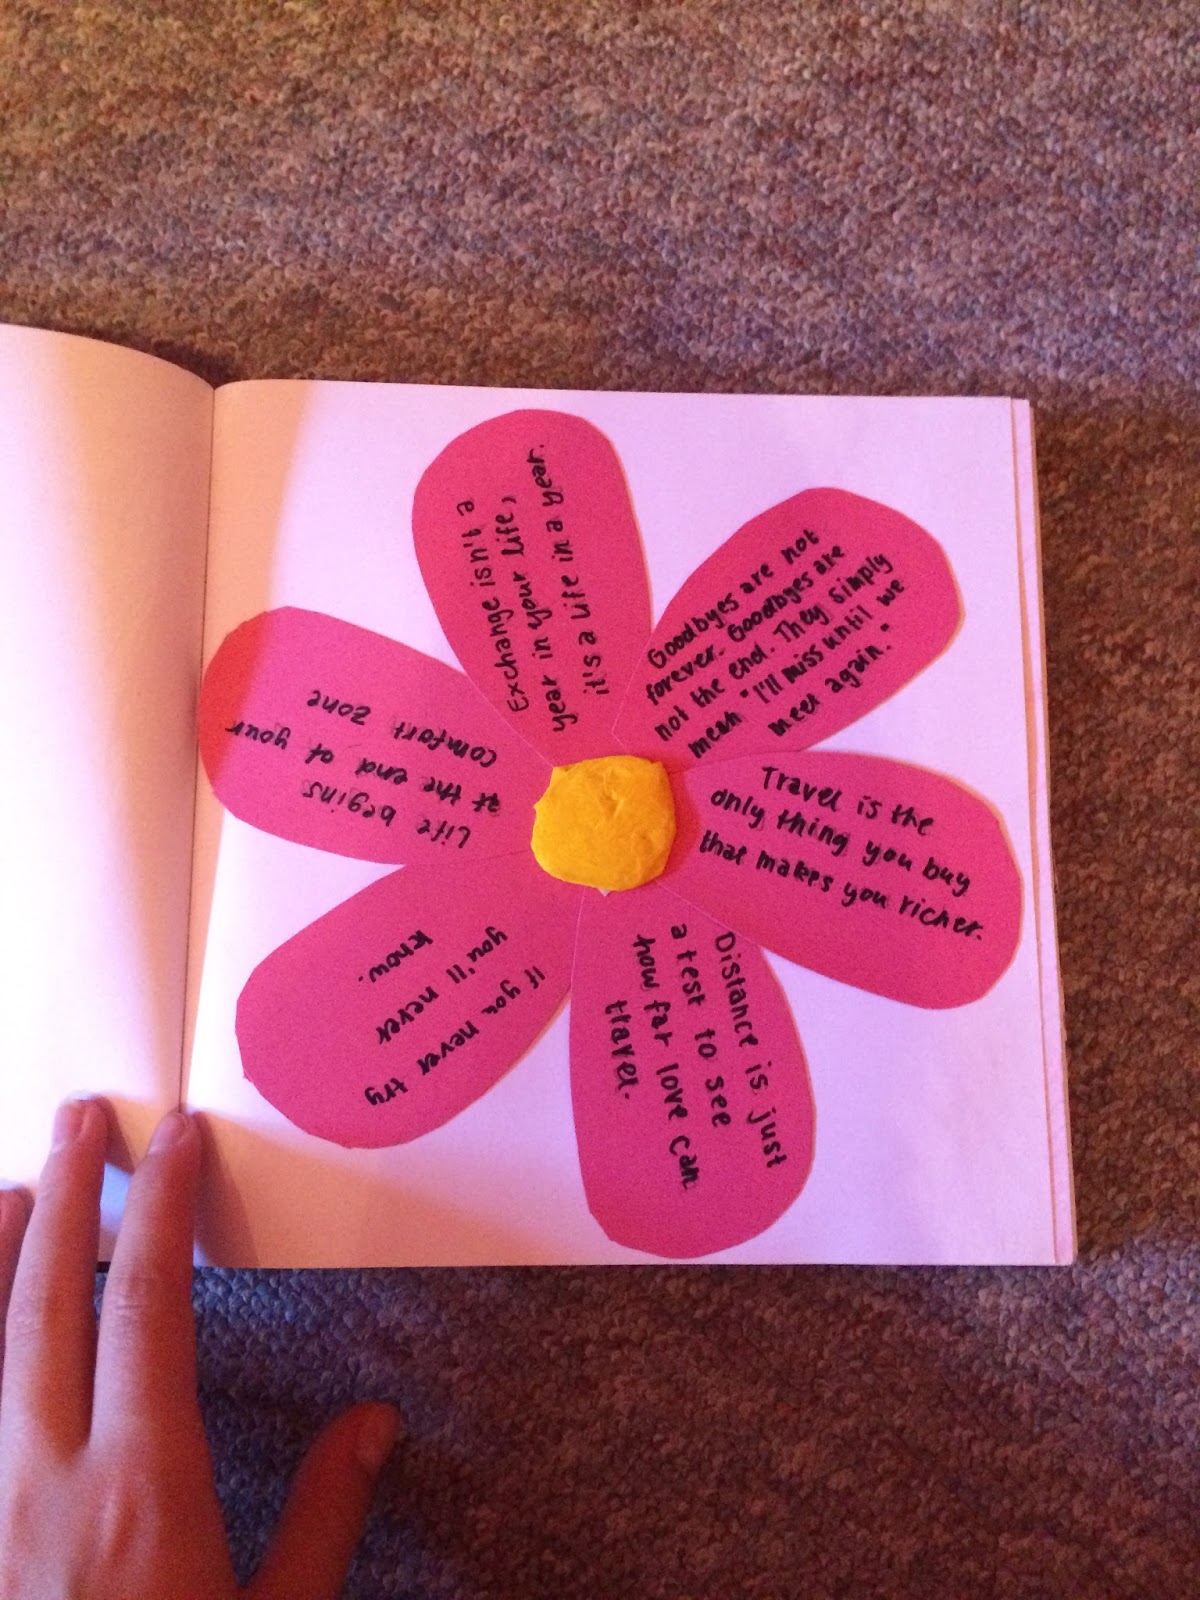 Exchange isn't a
year in your life,
it's a life in a year.
Goodbyes are not
forever. Goodbyes are
not the end. They simply
mean "I'll miss until we
meet again."
Travel is the
only thing you buy
that makes you richer.
Distance is just
a test to see
how far love can
travel.
If you never try
you'll never
know.
Life begins
at the end of your
comfort zone